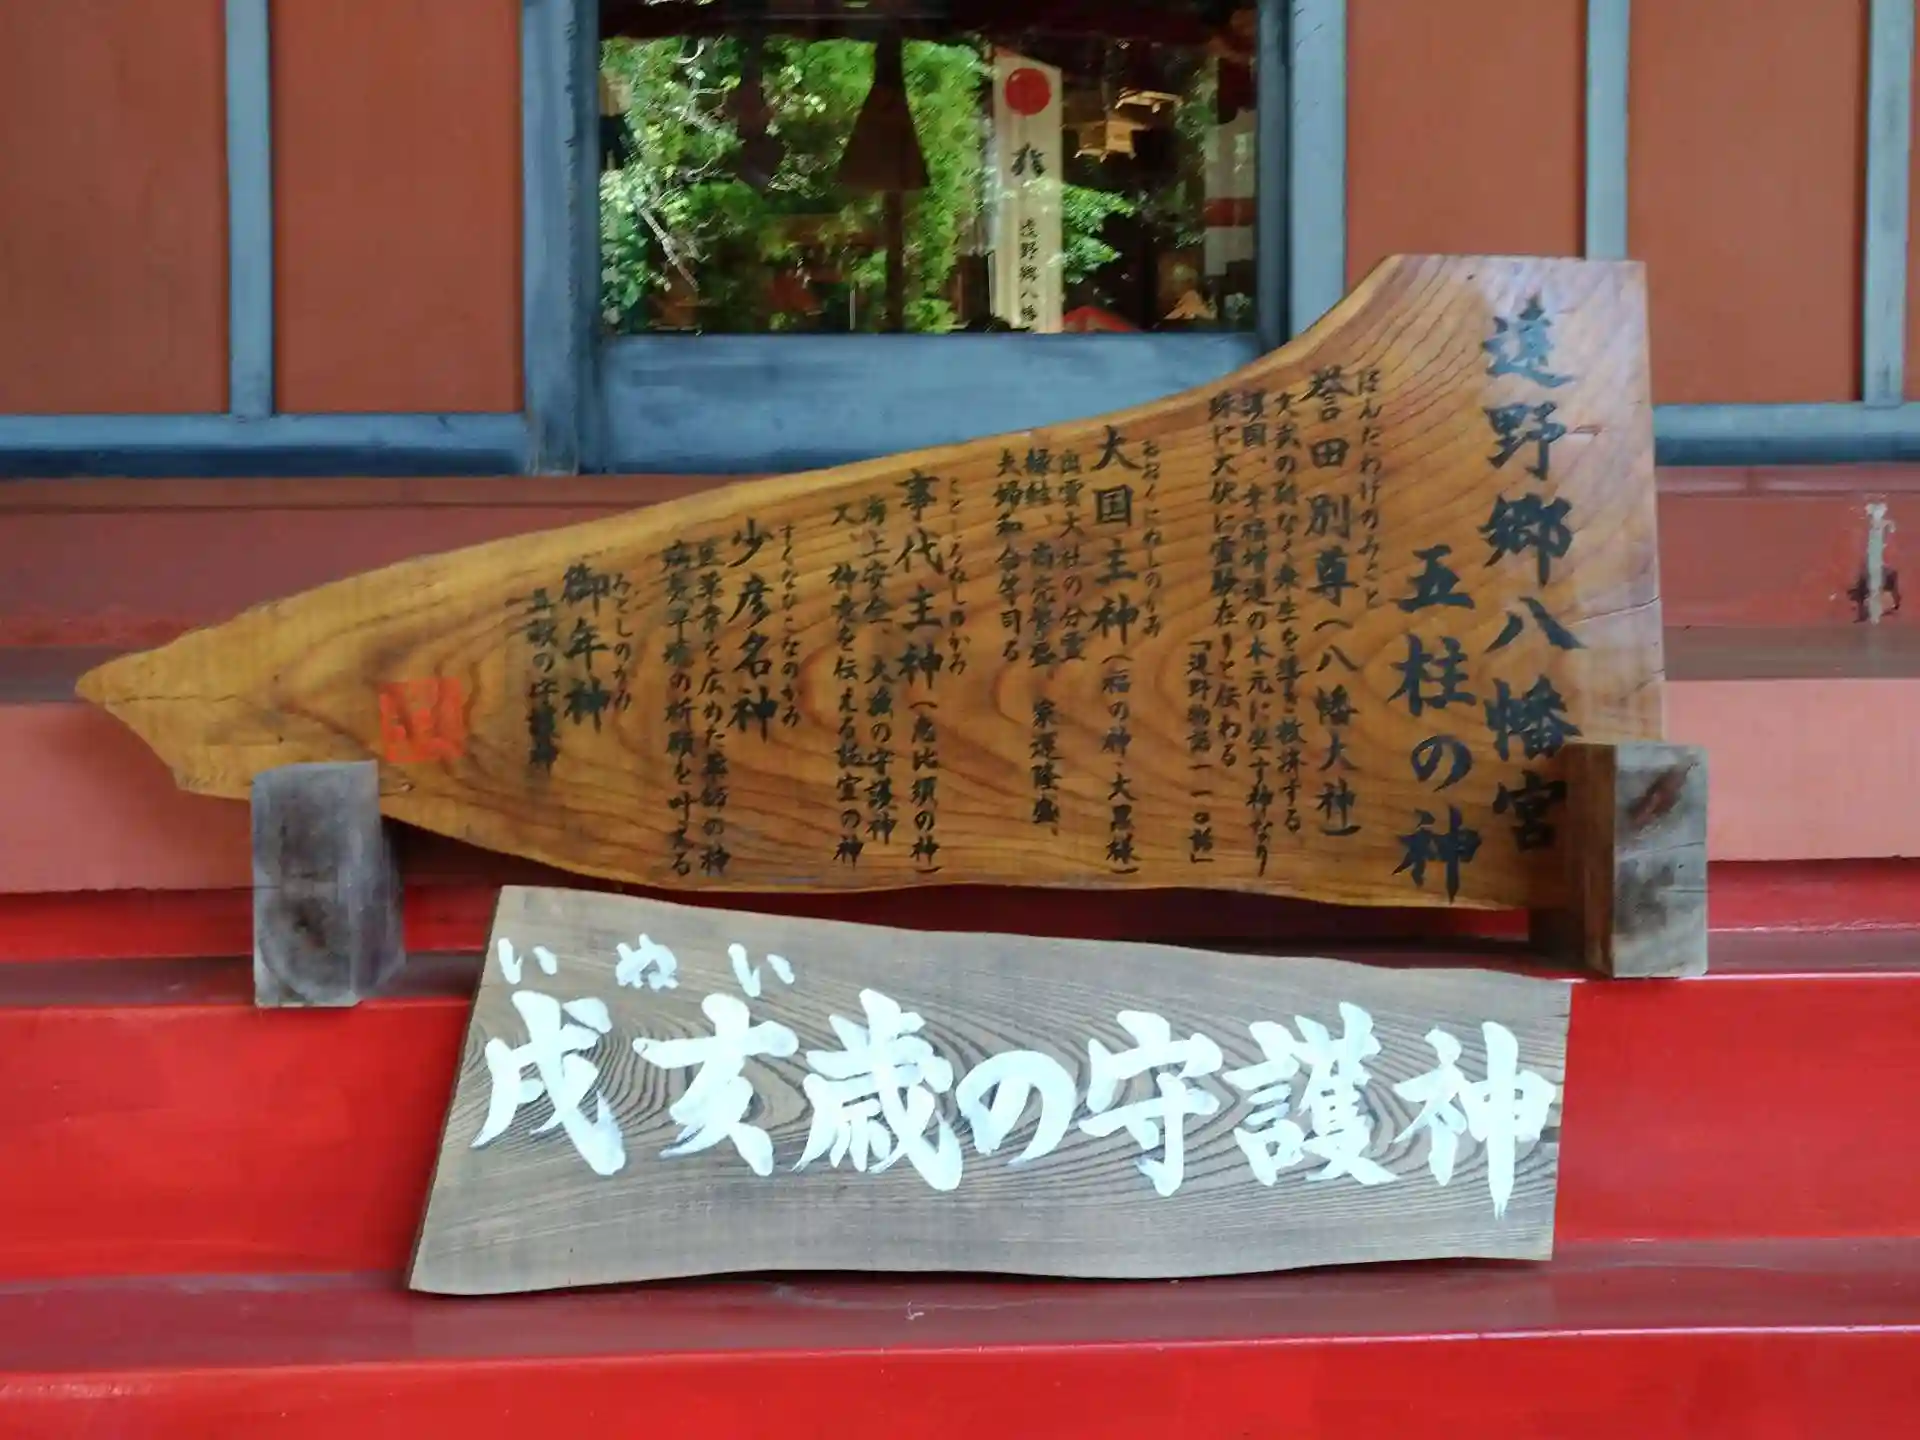 遠野郷八幡宮
五柱の神
ほんだわけのみこと
誉田別尊(八幡大神)
文武の別なく衆生を導き救済する
護国、幸福増進の本元に坐す神なり
殊に犬伏に霊験在りと伝わる
「遠野物語一一〇話」
おおくにぬしのかみ
大国主神(福の神・大黒様)
出雲大社の分霊
縁結、商売繁盛、家運隆盛、
夫婦和合等司る
ことしろぬしのかみ
事代主神(恵比須の神)
海上安全、大漁の守護神
又、神意を伝える託宣の神
すくなひこなのかみ
少彦名神
医薬書を広めた薬師の神
病気平癒の祈願を叶える
みとしのかみ
御年神
五穀の守護神
いぬい
戌亥歳の守護神
遠野郷八幡